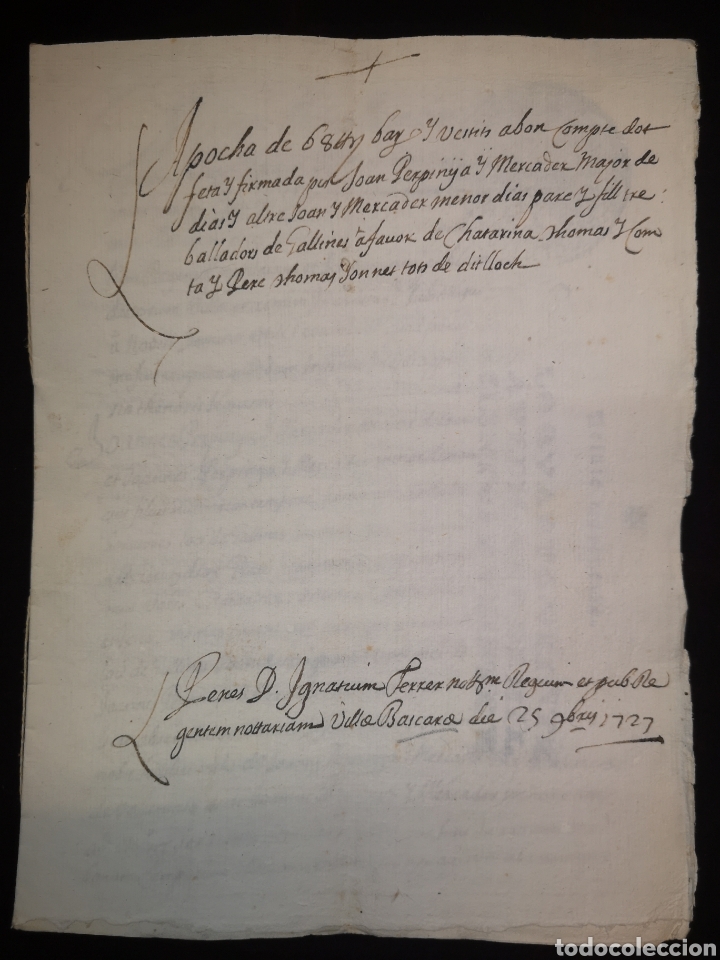 Apocha de 68 ₶ bar y vestits a bon Compte dot
feta y firmada per Joan Perpinyà y Mercader Major de
dias y altre Joan y Mercader menor dias pare y fill tre:
balladors de Gallines a favor de Chatarina Thomas y Com
ta y Pere Thomas Jonnes tots de dit lloch
Penes D. Ignatium Ferrer nottm Regium et pub Re
gentem nottariam Villæ Bascaræ die 25 9bris 1727
todocoleccion